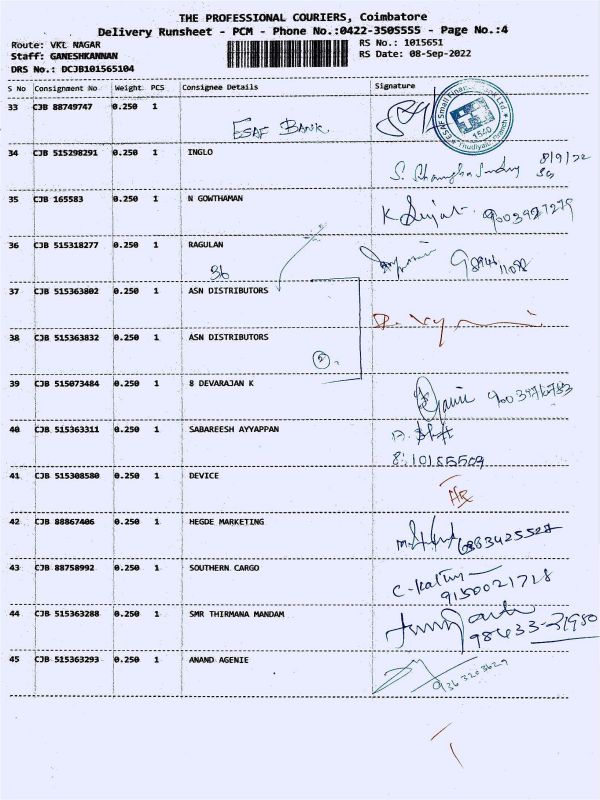 THE PROFESSIONAL COURIERS, Coimbatore
Delivery Runsheet - PCM - Phone No.:0422-3505555 - Page No.:4
Route: VKL NAGAR
RS No.: 1015651
Staff: GANESHKANNAN
RS Date: 08-Sep-2022
DRS No.: DCJB101565104
S No Consignment No Weight PCS Consignee Details Signature
33 CJB 88749747 0.250 1
ESAF BANK
ESAF Small Finance Ltd
1540
34 CJB 515298291 0.250 1 INGLO
8/9/22
35 CJB 165583 0.250 1 N GOWTHAMAN
9003927279
36 CJB 515318277 0.250 1 RAGULAN
36
37 CJB 515363802 0.250 1 ASN DISTRIBUTORS
38 CJB 515363832 0.250 1 ASN DISTRIBUTORS
2.
39 CJB 515073484 0.250 1 8 DEVARAJAN K
40 CJB 515363311 0.250 1 SABAREESH AYYAPPAN
41 CJB 515308580 0.250 1 DEVICE
42 CJB 88867406 0.250 1 HEGDE MARKETING
6383425527
43 CJB 88758992 0.250 1 SOUTHERN CARGO
9150021718
44 CJB 515363288 0.250 1 SMR THIRMANA MANDAM
98433-21980
45 CJB 515363293 0.250 1 ANAND AGENIE
9363203629